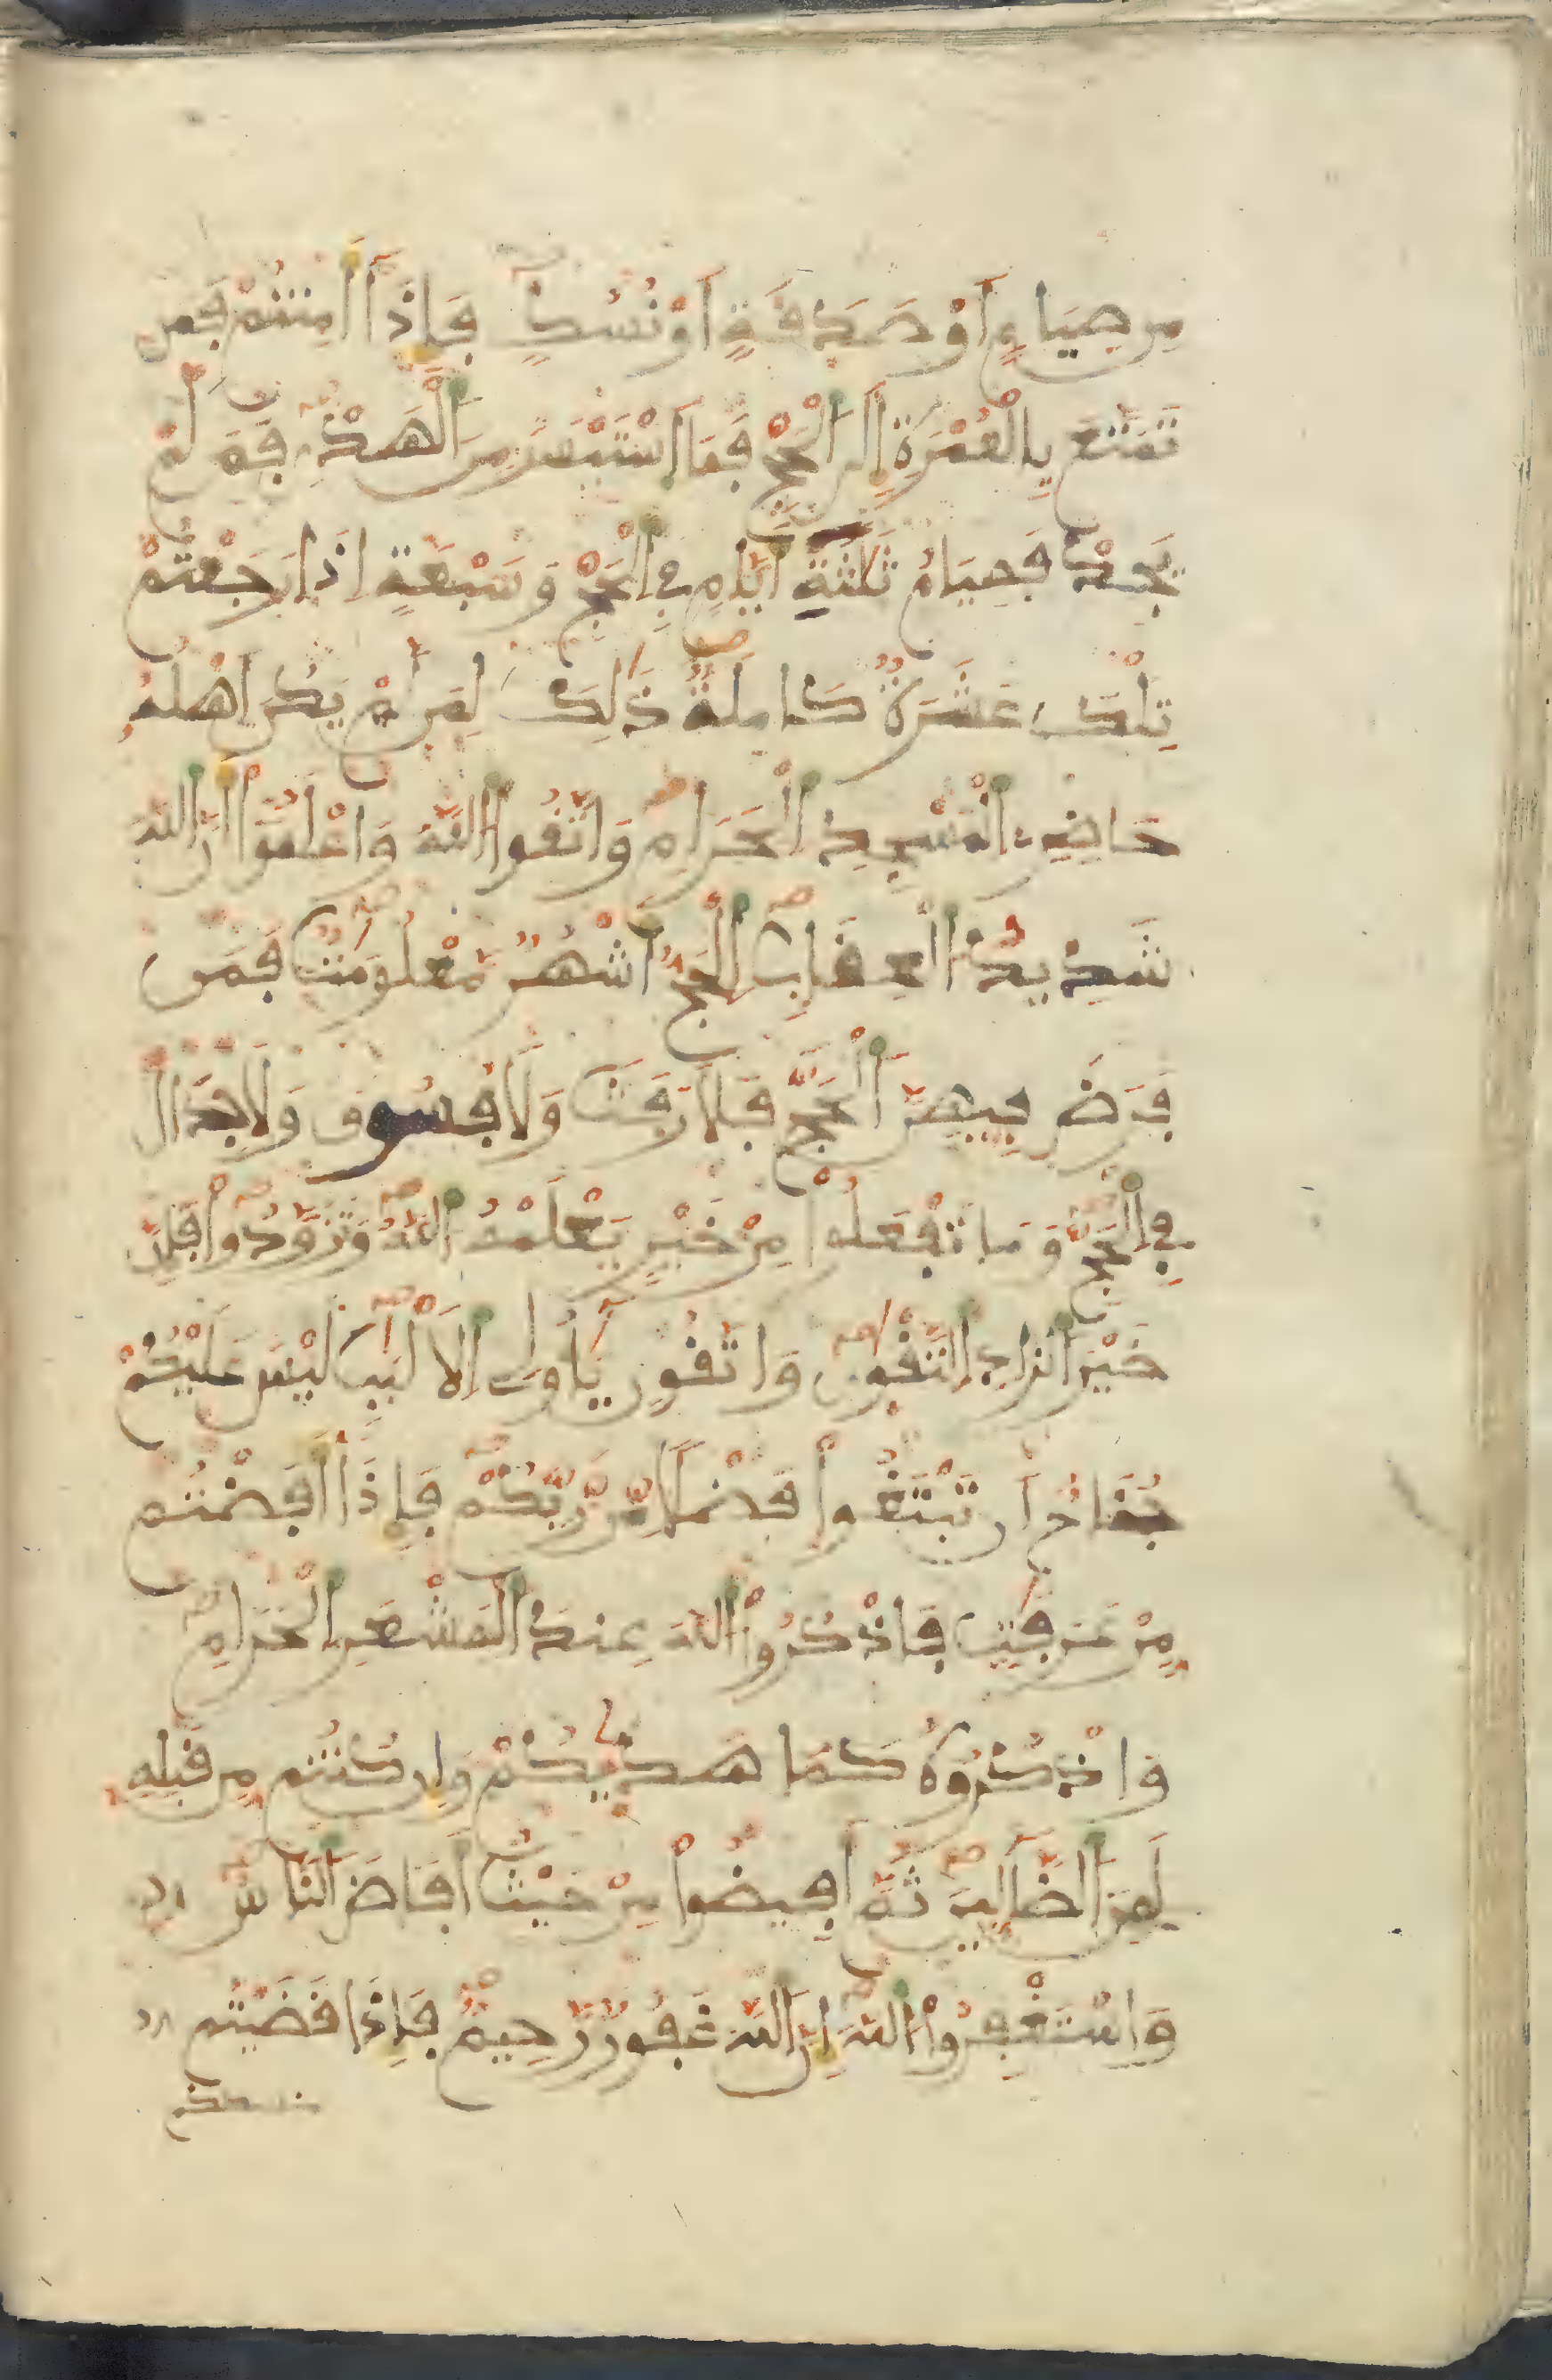 مِن صِيَامٍ اَوْ صَدَقَةٍ اَوْ نُسُكٍ فَإِذَا أَمِنتُمْ فَمَن
تَمَتَّعَ بِالْعُمْرَةِ إِلَى الْحَجِّ فَمَا اَسْتَيْسَرَ مِنَ الْهَدْيِ فَمَن لَّمْ
يَجِدْ فَصِيَامُ ثَلَثَةِ أَيَّامٍ فِي الْحَجِّ وَسَبْعَةٍ إِذَا رَجَعْتُمْ
تِلْكَ عَشَرَةٌ كَامِلَةٌ ذَلِكَ لِمَن لَّمْ يَكُنَ اَهْلُهُ
حَاضِرِي الْمَسْجِدِ الْحَرَامِ وَاتَّقُوا اللَّهَ وَاعْلَمُوا أَنَّ اللَّهَ
شَدِيدُ الْعِقَابِ الْحَجُّ أَشْهُرٌ مَّعْلُومَتٌ فَمَن
فَرَضَ فِيهِنَّ الْحَجَّ فَلَا رَفَثَ وَلَا فُسُوقَ وَلَا جِدَالَ
فِي الْحَجِّ وَمَا تَفْعَلُوا مِنْ خَيْرٍ يَعْلَمْهُ اللَّهُ وَتَزَوَّدُوا فَإِنَّ
خَيْرَ الزَّادِ التَّقْوَى وَاتَّقُونِ يَأُولِي الْأَلْبَبِ لَيْسَ عَلَيْكُمْ
جُنَاحٌ اَن تَبْتَغُوا فَضْلًا مِّن رَّبِّكُمْ فَإِذَا أَفَضْتُم
مِّنْ عَرَفَتٍ فَاذْكُرُوا اللَّهَ عِندَ الْمَشْعَرِ الْحَرَامِ
وَاذْكُرُوهُ كَمَا هَدَيكُمْ وَإِن كُنتُم مِّن قَبْلِهِ
لَمِنَ الضَّالِّينَ ثُمَّ أَفِيضُوا مِنْ حَيْثُ أَفَاضَ النَّاسُ
وَاسْتَغْفِرُوا اللَّهَ إِنَّ اللَّهَ غَفُورٌ رَّحِيمٌ فَإِذَا قَضَيْتُم
منسككم